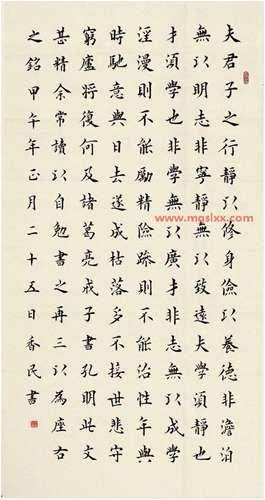 夫君子之行靜以修身儉以養德非澹泊
無以明志非寧靜無以致遠夫學須靜也
才須學也非學無以廣才非志無以成學
淫漫則不能勵精險躁則不能治性年與
時馳意與日去遂成枯落多不接世悲守
窮廬將復何及諸葛亮戒子書孔明此文
甚精余常讀以自勉書之再三以為座右
之銘甲午年正月二十五日香民書
www.mgslxx.com